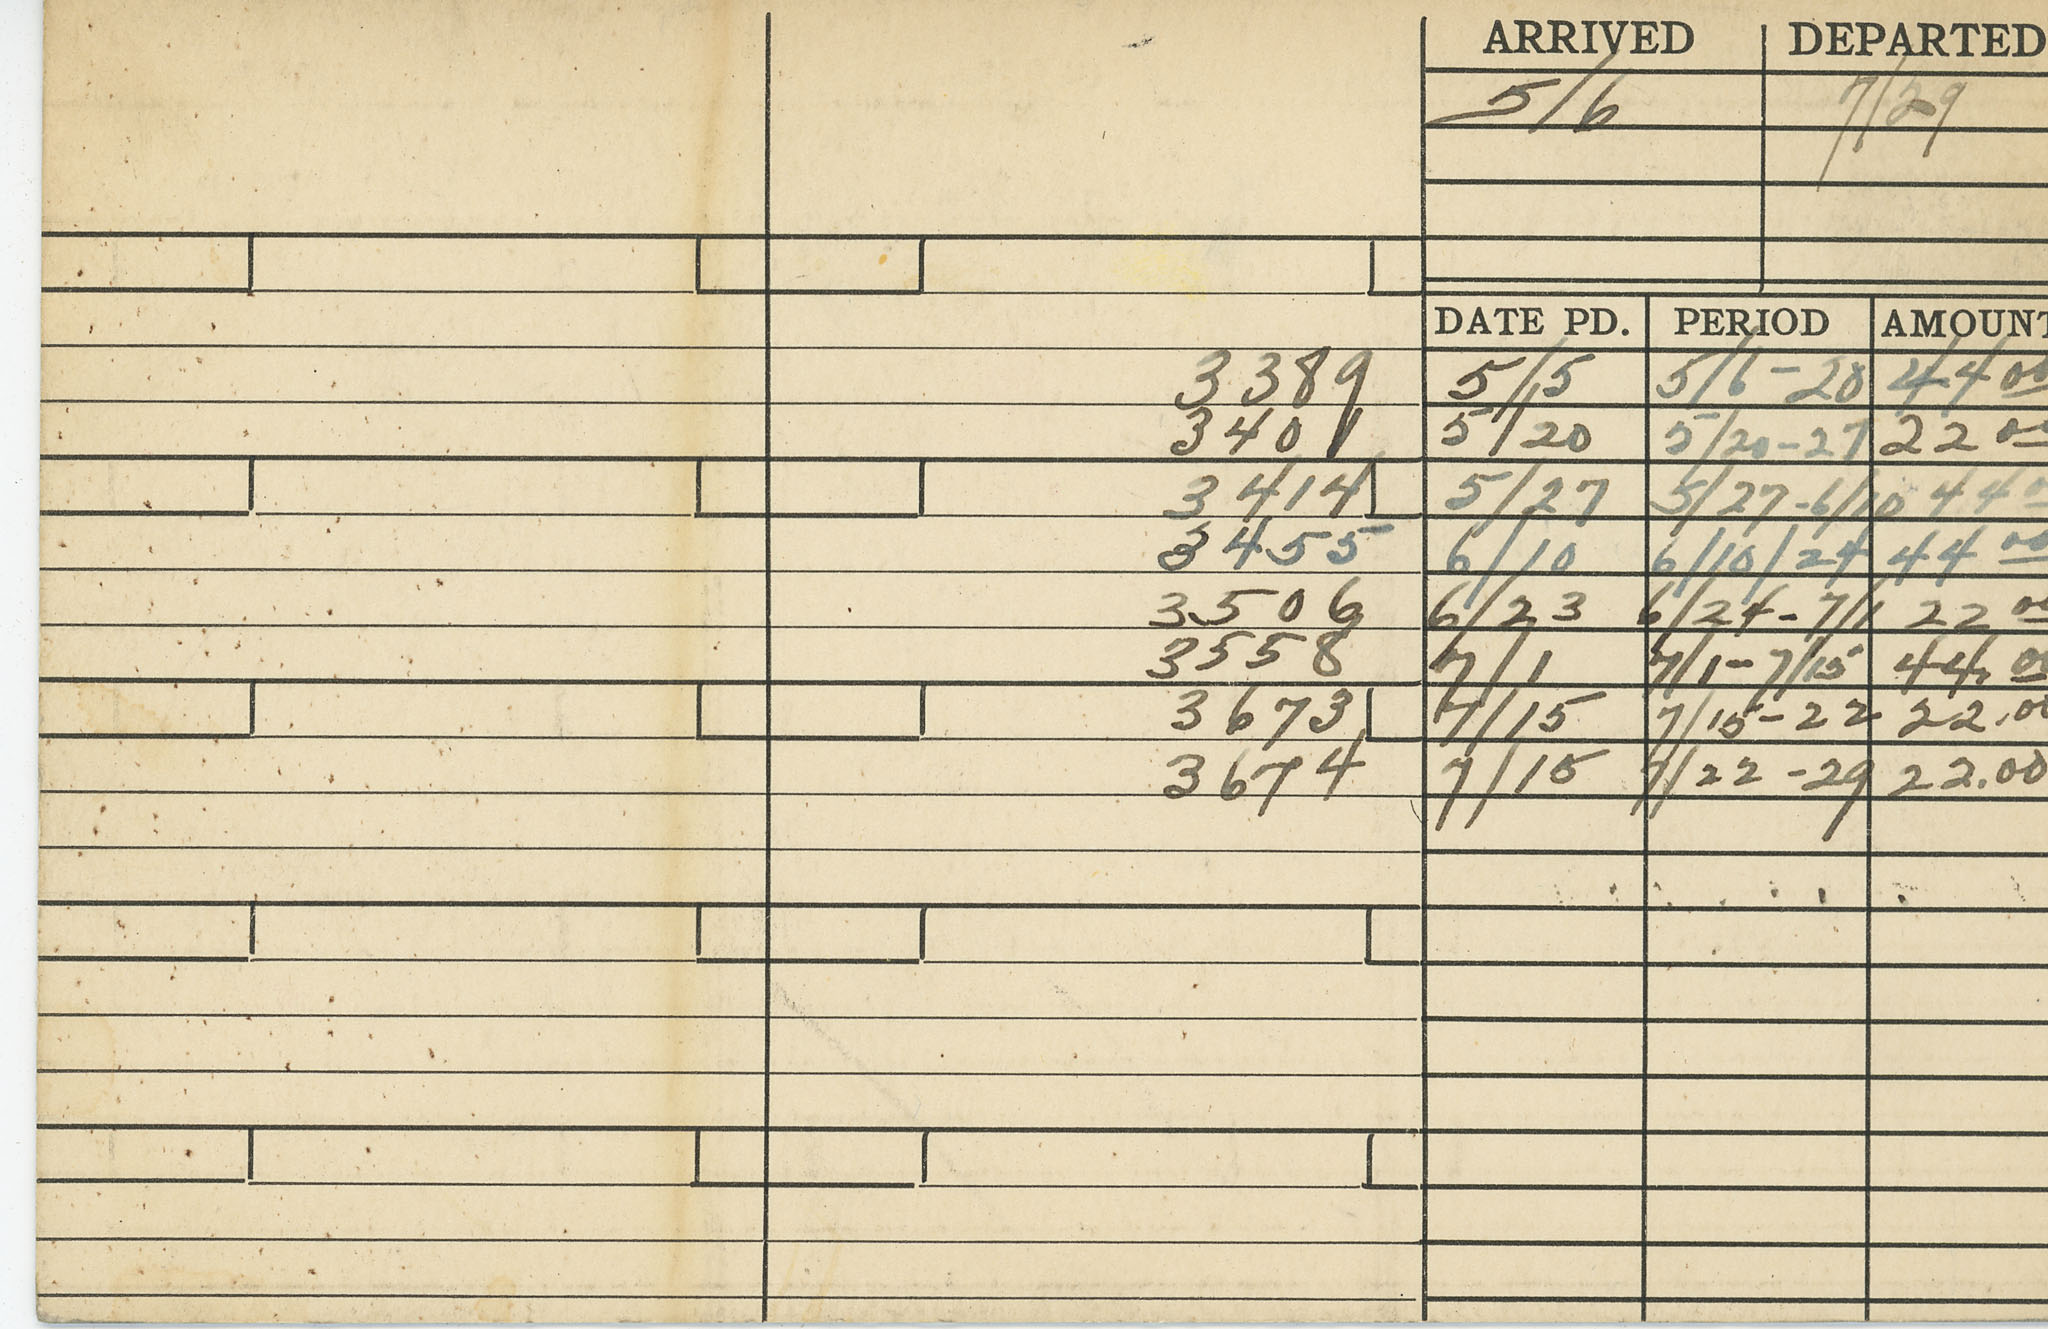 ARRIVED DEPARTED
5/6 7/29
DATE PD. PERIOD AMOUNT
3389 5/5 5/6-20 44 00
3401 5/20 5/20-27 22 00
3414 5/27 5/27-6/10 44 00
3455 6/10 6/10/24 44 00
3506 6/23 6/24-7/1 22 00
3558 7/1 7/1-7/15 44.00
3673 7/15 7/15-22 22.00
3674 7/15 7/22-29 22.00